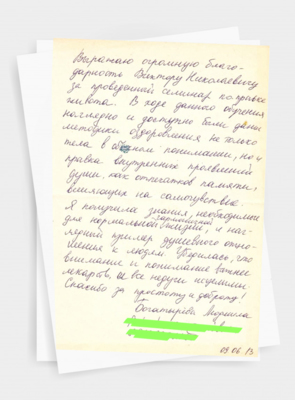 Выражаю огромную благо-
дарность Виктору Николаевичу
за проведенный семинар по правке
живота. В ходе данного обучения
наглядно и доступно были даны
методики оздоровления не только
тела в ином понимании, но и
правка внутренних проявлений
души, как отпечатков памяти,
влияющих на самочувствие.
Я получила знания, необходимые
для нормальной жизни, и наг-
лядный пример душевного отно-
шения к людям. Убедилась, что
внимание и понимание важнее
лекарств, и все недуги исцелимы.
Спасибо за простоту и доброту!
Богатырёва Людмила
09.06.13